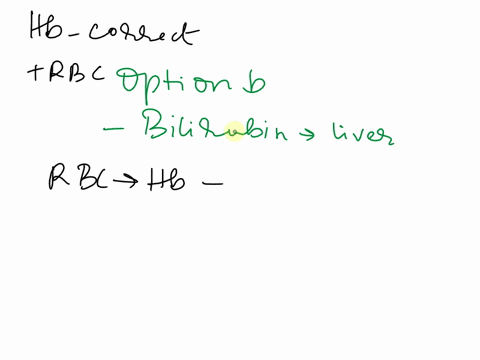 Hb - correct
+RBC Option b
- Bilirubin → liver
RBC → Hb -